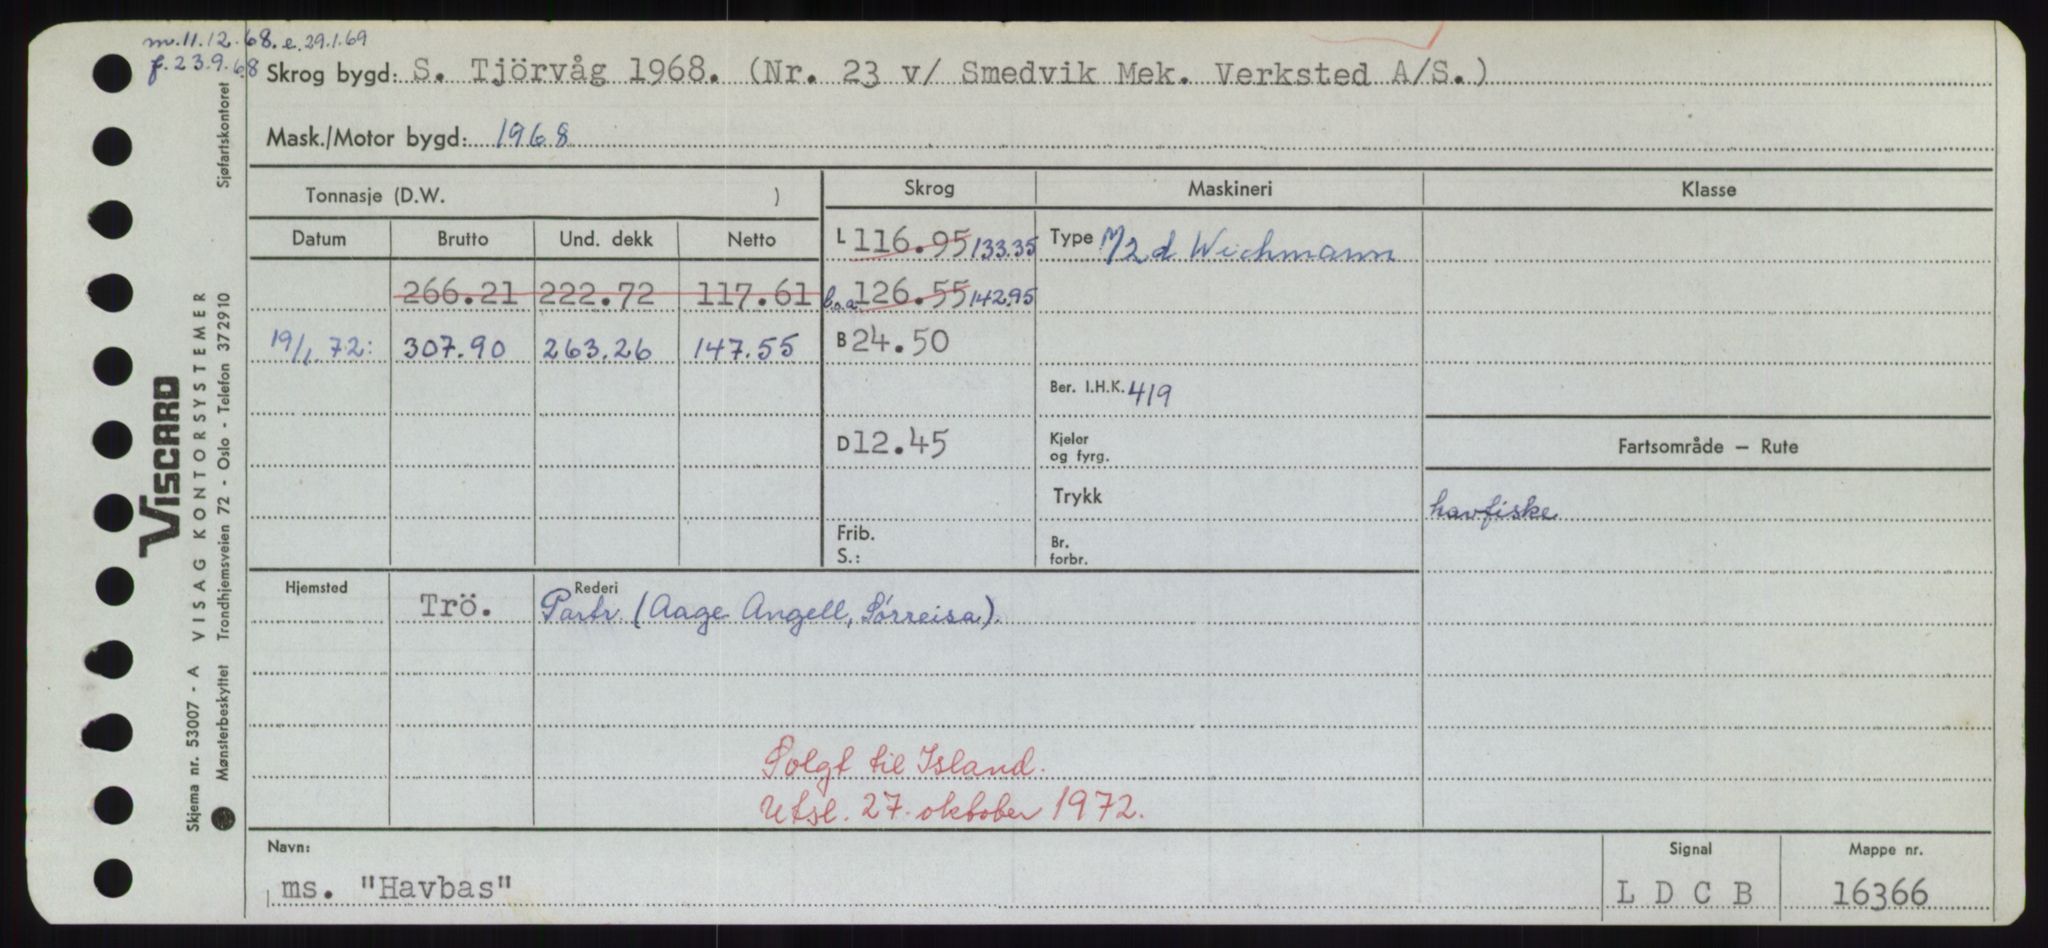 m. 11.12.68. e. 29.1.69
f. 23.9.68
Skrog bygd: S. Tjörvåg 1968. (Nr. 23 v/ Smedvik Mek. Verksted A/S.)
Mask./Motor bygd: 1968
Tonnasje (D.W. )
Skrog Maskineri Klasse
Datum Brutto Und. dekk Netto
L 116.95 133.35 Type M/2 d Wichmann
266.21 222.72 117.61 l.o.a. 126.55 142.95
19/1.72: 307.90 263.26 147.55 B 24.50
Ber. I.H.K. 419
D 12.45 Kjeler og fyrg.
Fartsområde – Rute
Trykk
havfiske
Frib.
S.:
Br. forbr.
Hjemsted Rederi
Trö. Partr. (Aage Angell, Sørreisa).
Solgt til Island.
Utsl. 27. oktober 1972.
Navn: Signal Mappe nr.
ms. "Havbas" L D C B 16366
Sjøfartskontoret
VISCARD
VISAG KONTORSYSTEMER
Trondhjemsveien 72 - Oslo - Telefon 372910
Skjema nr. 53007 - A
Mønsterbeskyttet